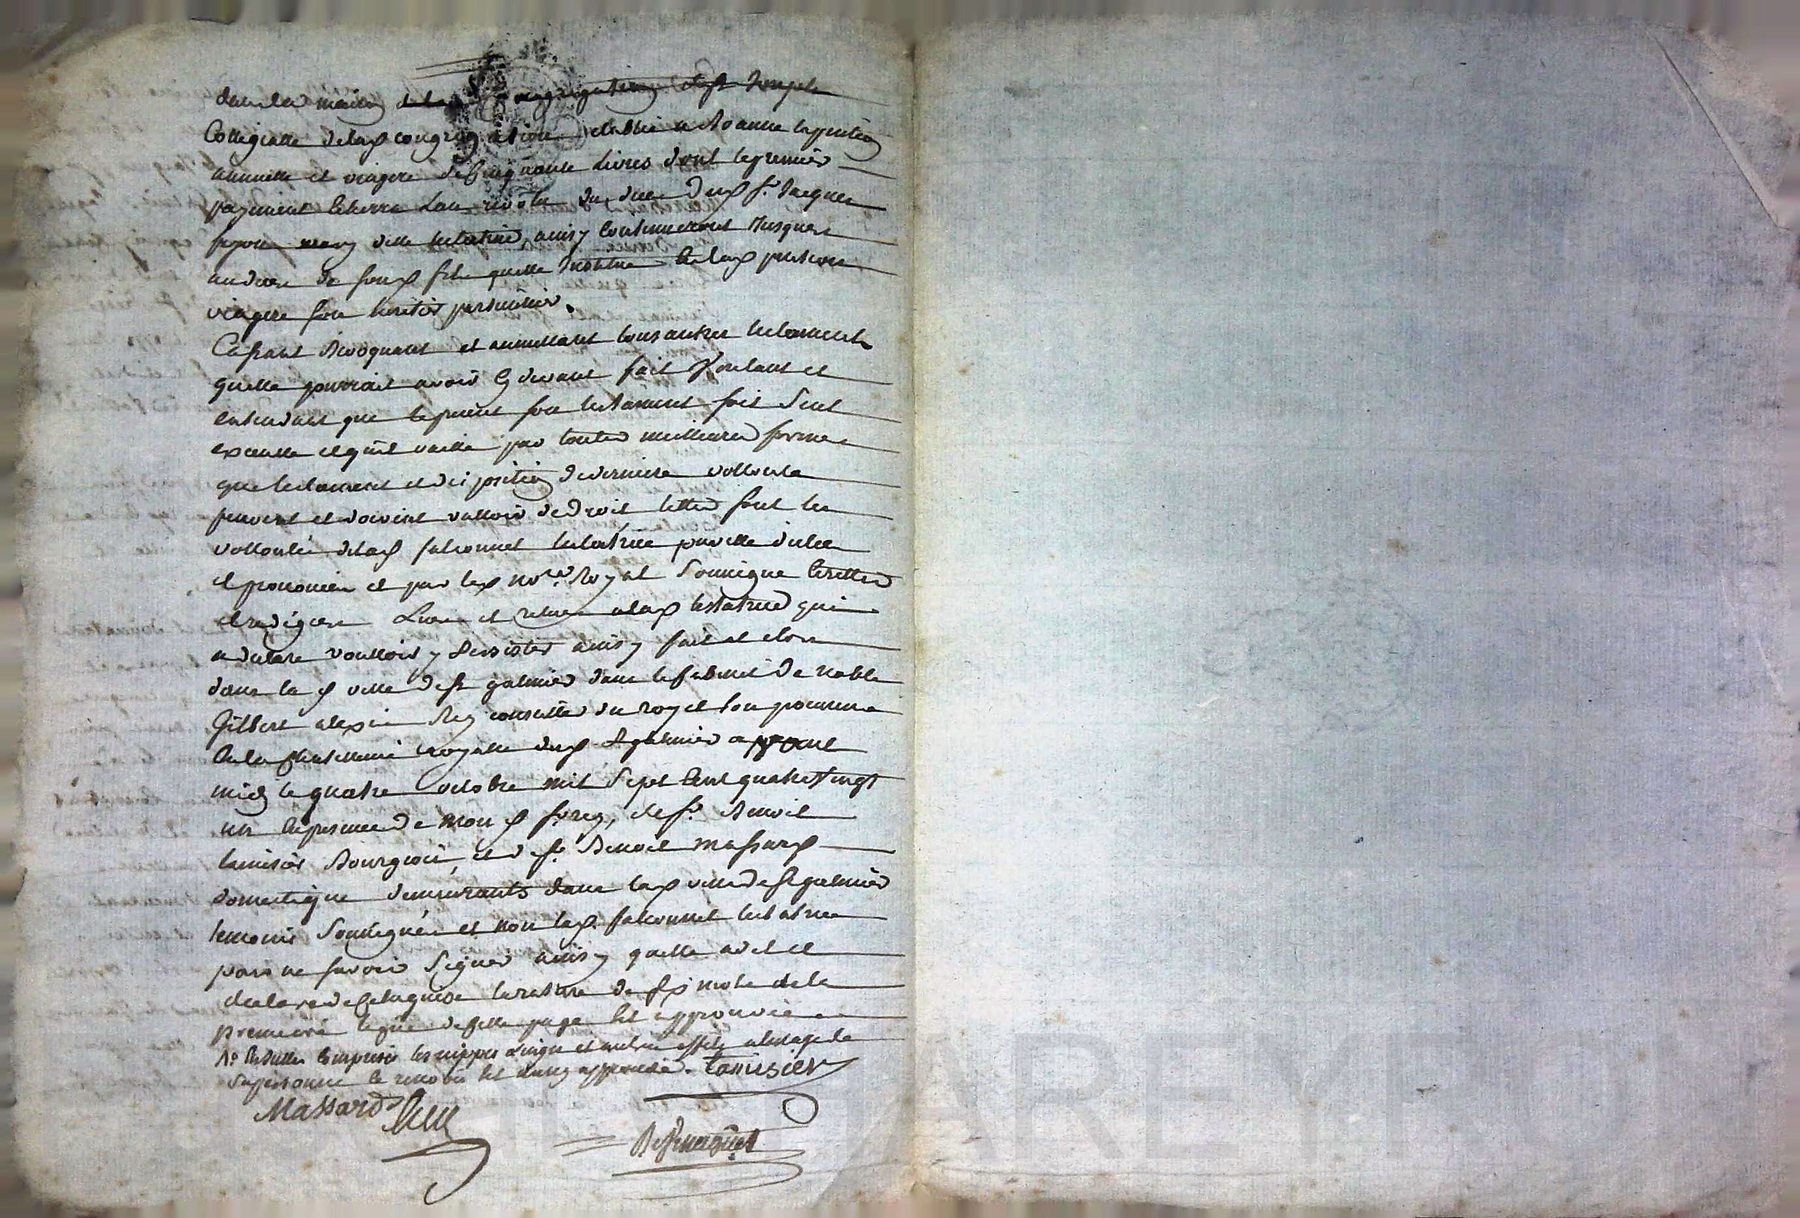 dans les maison de la congregation de St Joseph
Collegialle de lad congregation etablie a Roanne la pention
annuelle et viagere de Cinquante Livres dont le premier
payement lan revolu du dices dud sr. Jacques
ditte testatrice ainsy Continueront Jusques
au dices de son fils quelle Institue en lad pention
viagere son heritier particulier.
Cassant Revoquant et annullant tous autres testaments
quelle pourroit avoir Cy devant fait Voulant et
entendant que le present son testament soit Seul
execute et quil vaille par toutes meilleures formes
que testament et disposition de derniere vollonte
peuvent et doivent valloir de droit telles sont les
vollontes de lad falconnet testatrice par elle dictees
et prononcées et par led no.re Royal Soussigne Ecrittes
et redigées Lues et relues a lad testatrice qui
a declare voulloir y Persister ainsy fait et clos
dans la d ville de St galmier dans le Cabinet de noble
Gilbert alexis Rey conseiller du roy et son procureur
en la Chatellenie royalle dud St galmier avant
midy le quatre octobre mil Sept Cent quatre Vingt
un En presence de mond sr. rey, de sr. Benoit
tamisier Bourgeois et de sr. Benoit massard
domestique demeurants dans lad ville de St galmier
temoins Soussignés et non lad. falconnet testatrice
pour ne savoir Signer ainsy quelle a dit et
declare de Ce enquise la rature de six mots de la
premiere ligne de cette page Est approuvée
les nippes Linge et autres effets a lusage de
Sa personne le renvoi Est aussy approuvé. tamisier
Massard Rey